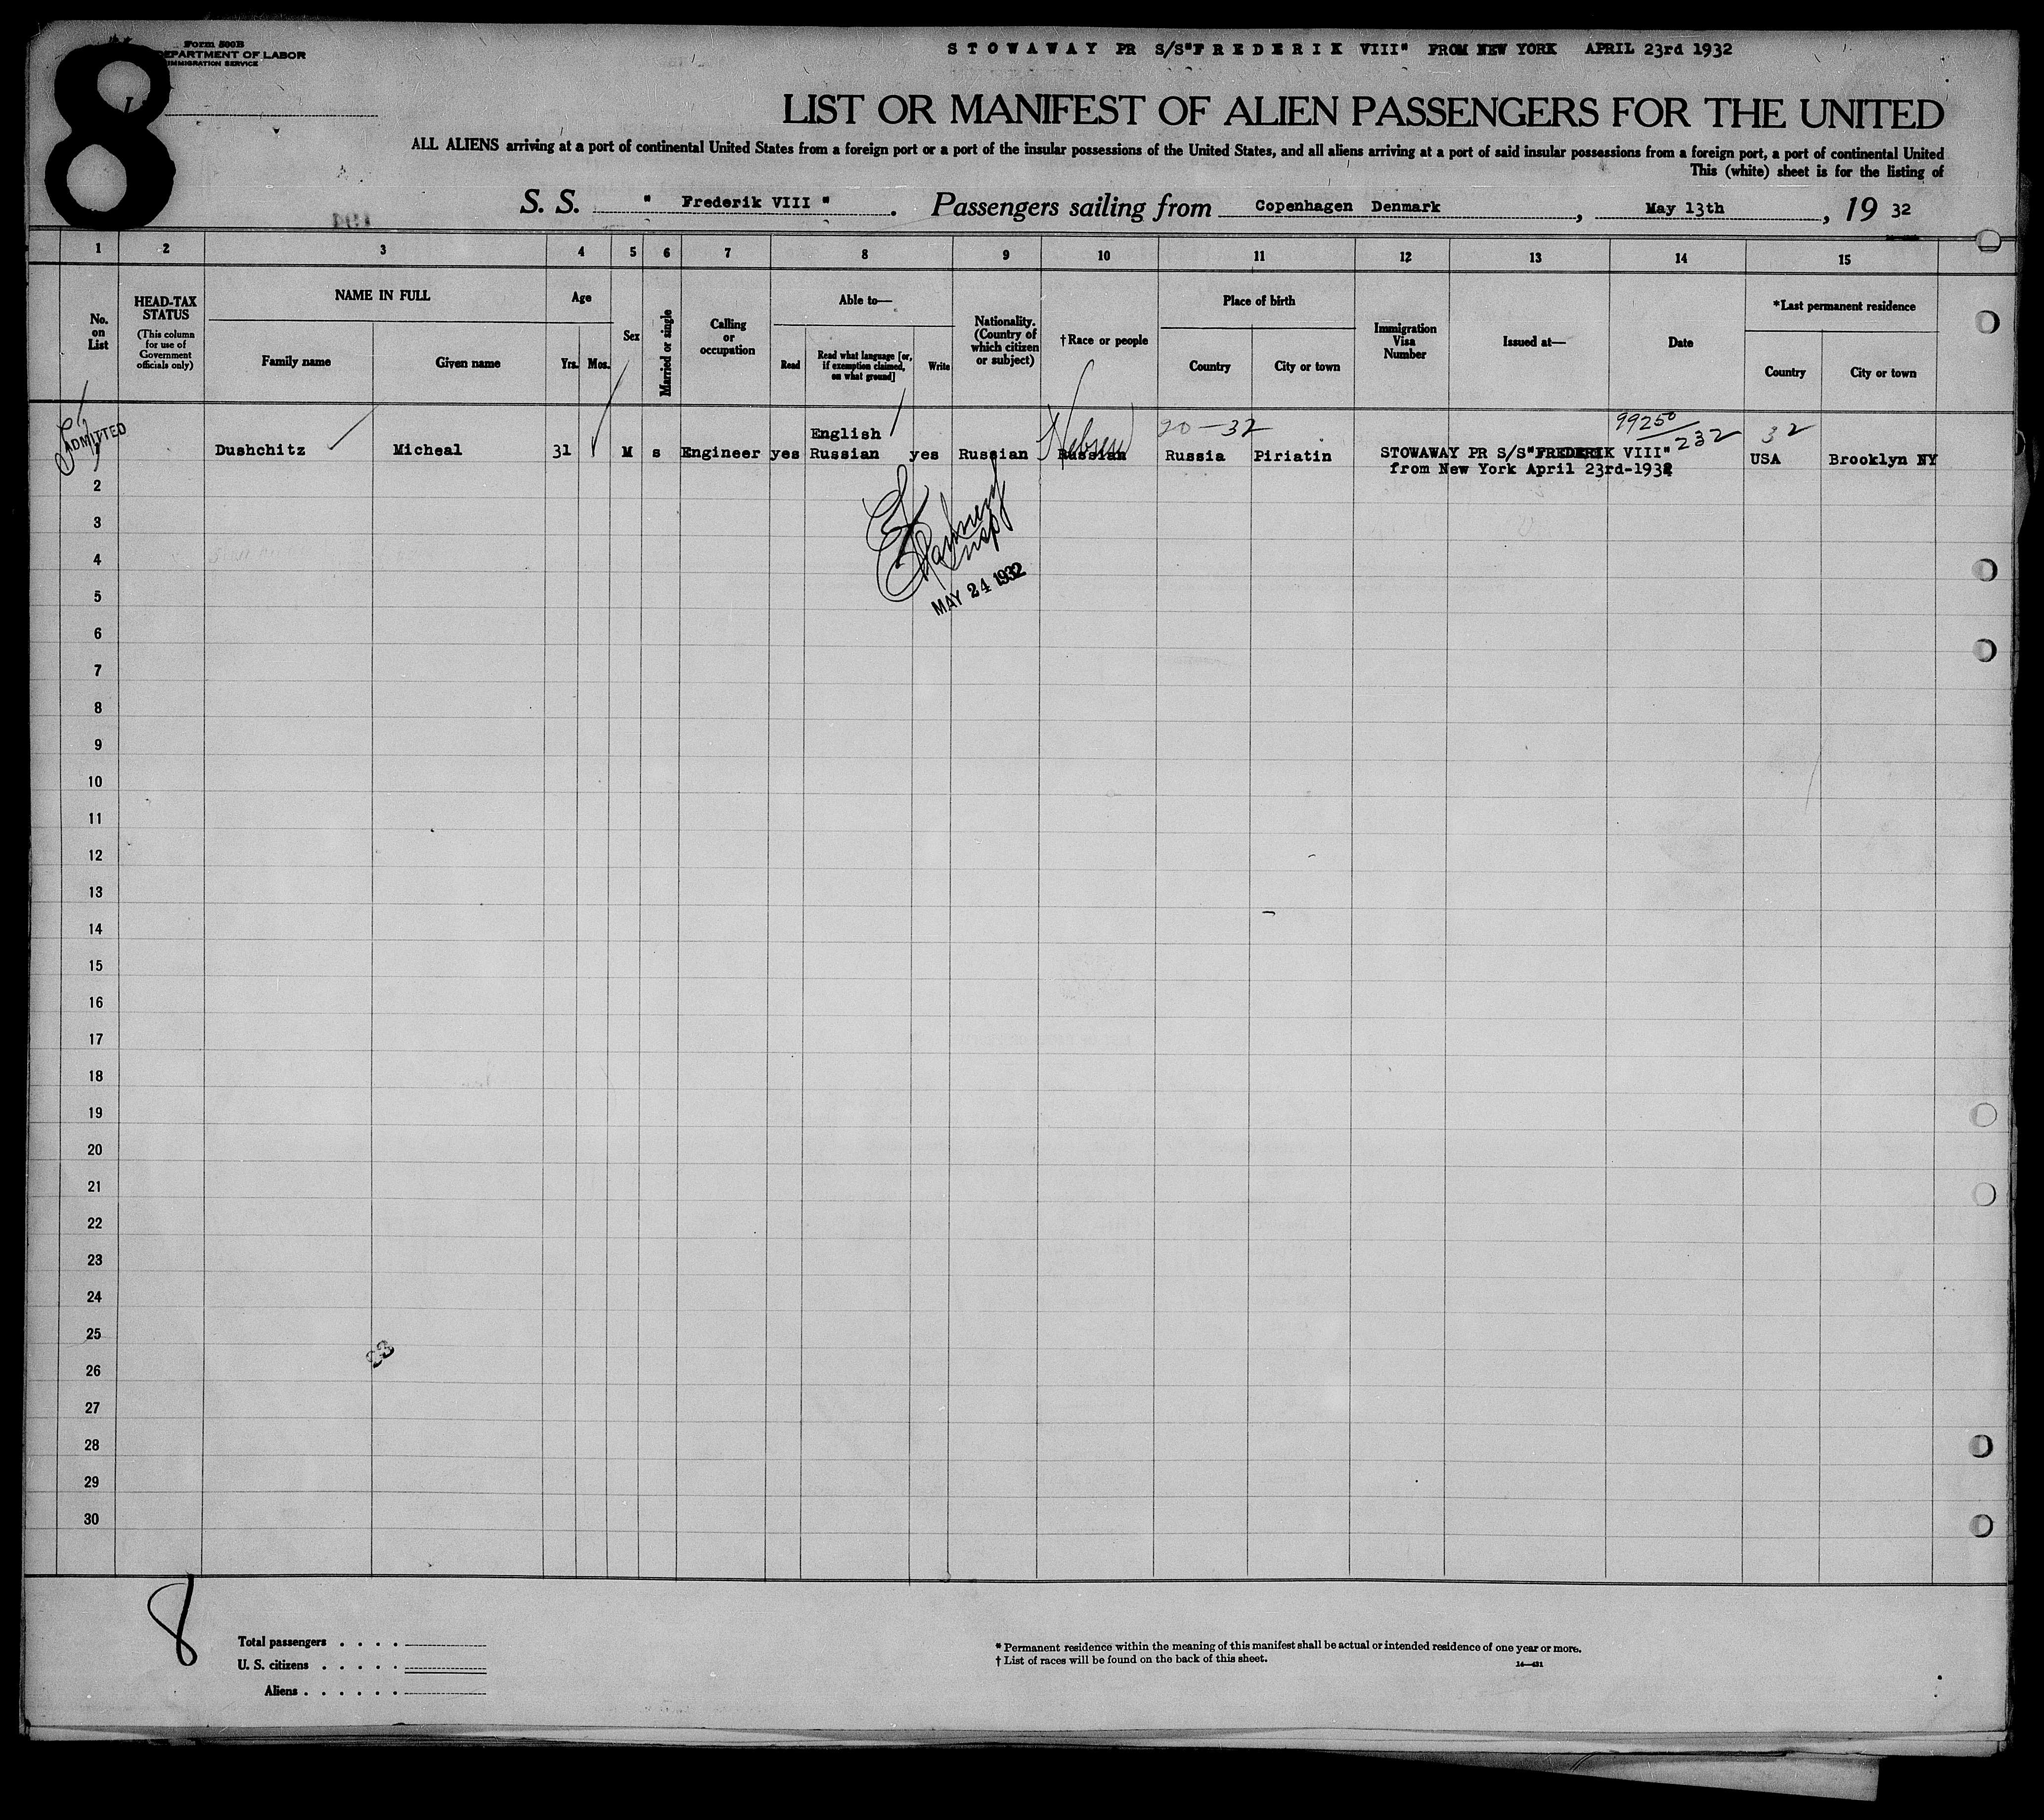 Form 500B
DEPARTMENT OF LABOR
IMMIGRATION SERVICE
STOWAWAY PR S/S"FREDERIK VIII" FROM NEW YORK APRIL 23rd 1932
8
LIST OR MANIFEST OF ALIEN PASSENGERS FOR THE UNITED
ALL ALIENS arriving at a port of continental United States from a foreign port or a port of the insular possessions of the United States, and all aliens arriving at a port of said insular possessions from a foreign port, a port of continental United
This (white) sheet is for the listing of
S. S. " Frederik VIII ". Passengers sailing from Copenhagen Denmark, May 13th, 19 32
1 2 3 4 5 6 7 8 9 10 11 12 13 14 15
No. on List
HEAD-TAX STATUS
(This column for use of Government officials only)
NAME IN FULL
Family name Given name
Age
Yrs. Mos.
Sex
Married or single
Calling or occupation
Able to—
Read
Read what language [or, if exemption claimed, on what ground]
Write
Nationality. (Country of which citizen or subject)
†Race or people
Place of birth
Country City or town
Immigration Visa Number
Issued at—
Date
*Last permanent residence
Country City or town
ADMITTED
99250
20-32 232 32
Hebrew
English
1 Dushchitz Micheal 31 M s Engineer yes Russian yes Russian Russian Russia Piriatin STOWAWAY PR S/S"FREDERIK VIII" USA Brooklyn NY
from New York April 23rd-1932
2
3
4
5
MAY 24 1932
6
7
8
9
10
11
12
13
14
15
16
17
18
19
20
21
22
23
24
25
26
27
28
29
30
8
Total passengers . . . .
U. S. citizens . . . . .
Aliens . . . . . .
* Permanent residence within the meaning of this manifest shall be actual or intended residence of one year or more.
† List of races will be found on the back of this sheet.
14—431